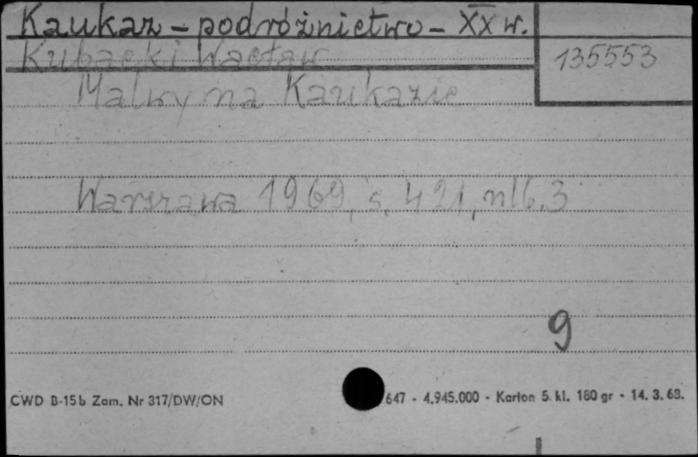 Kaukaz - podróżnictwo - XX w.
135553
Kubacki Wacław
Malwy na Kaukazie
Warszawa 1969, s. 421, nlb. 3
9
CWD B-15b Zam. Nr 317/DW/ON
647 - 4.945.000 - Karton 5. kl. 180 gr - 14. 3. 68.